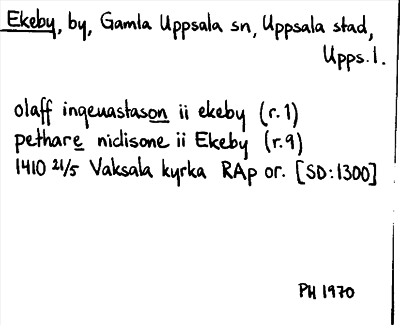 Ekeby, by, Gamla Uppsala sn, Uppsala stad,
Upps. l.
olaff ingeuastason ii ekeby (r. 1)
pethare nidisone ii Ekeby (r. 9)
1410 21/5 Vaksala kyrka RAp or. [SD: 1300]
PH 1970